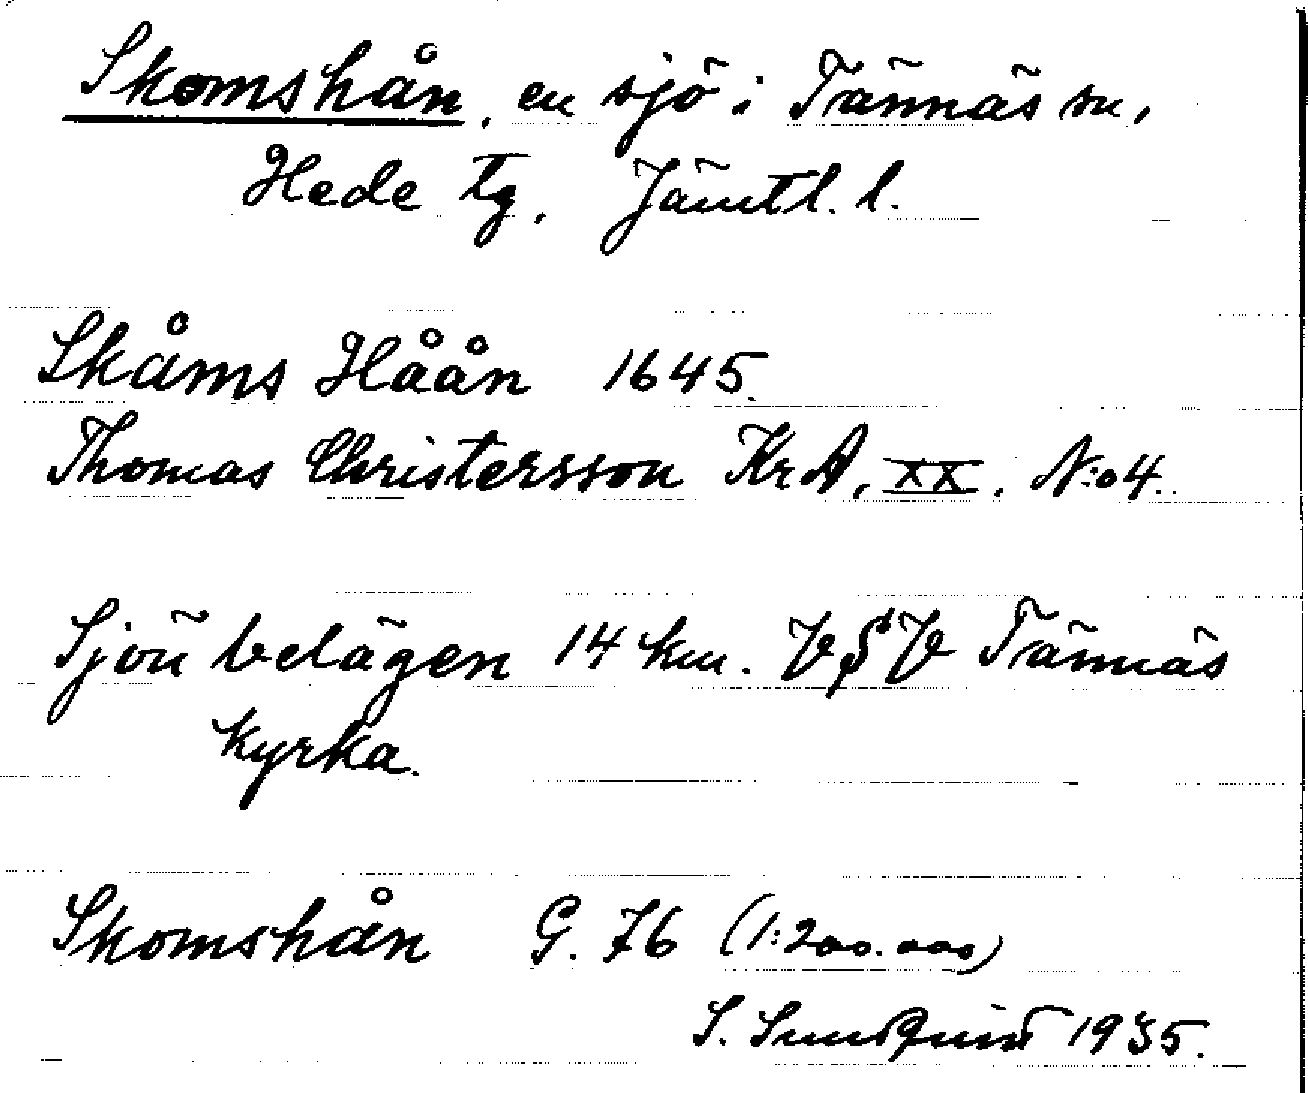 Skomshån, en sjö i Tännäs sn,
Hede tg, Jämtl. l.
Skåms Håån 1645.
Thomas Christersson Kr A, XX, N:o 4.
Sjön belägen 14 km. VSV Tännäs
kyrka.
Skomshån G. 76 (1:200.000)
S. Sundquist 1935.